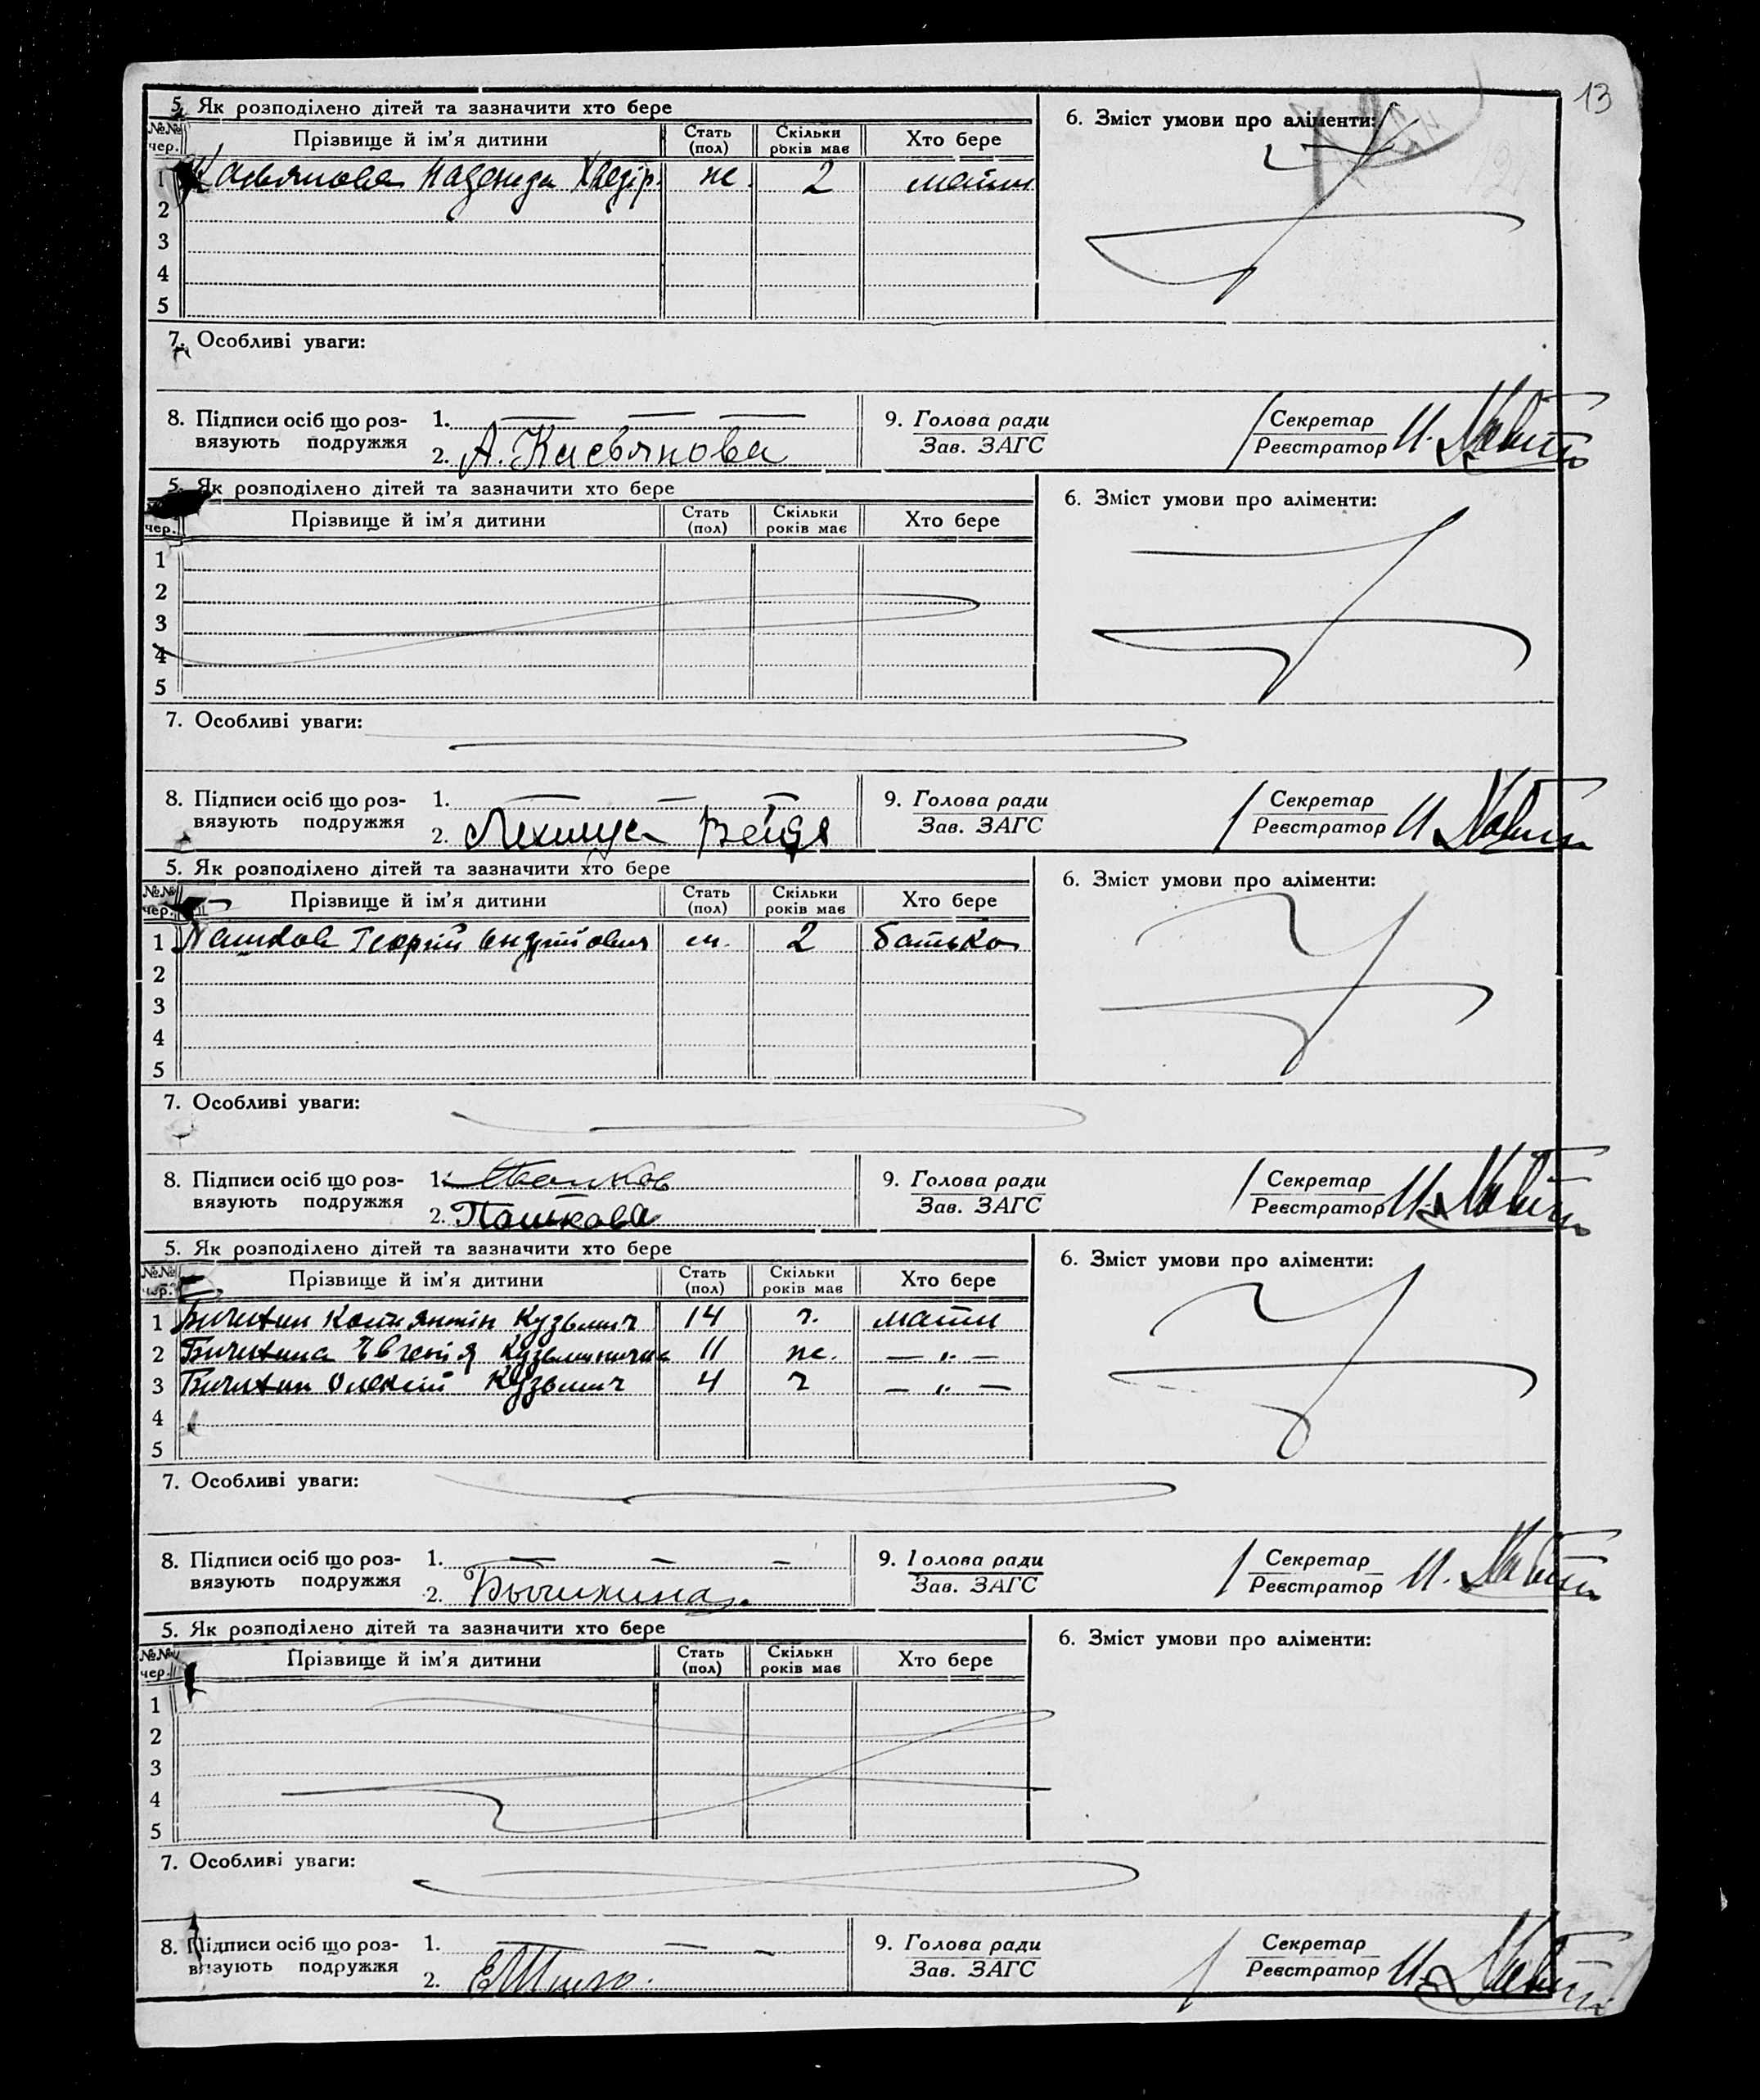 13
5. Як розподілено дітей та зазначити хто бере
6. Зміст умови про аліменти:
№№ чер. Прізвище й ім'я дитини Стать (пол) Скільки років має Хто бере
1 Касьянова Надежда ж. 2 мати
2
3
4
5
7. Особливі уваги:
8. Підписи осіб що роз-
вязують подружжя
1. — — —
2. А. Касьянова
9. Голова ради
Зав. ЗАГС
Секретар
Реєстратор И.
5. Як розподілено дітей та зазначити хто бере
6. Зміст умови про аліменти:
чер. Прізвище й ім'я дитини Стать (пол) Скільки років має Хто бере
1
2
3
4
5
7. Особливі уваги:
8. Підписи осіб що роз-
вязують подружжя
1. — — —
2.
9. Голова ради
Зав. ЗАГС
Секретар
Реєстратор И.
5. Як розподілено дітей та зазначити хто бере
6. Зміст умови про аліменти:
№№ чер. Прізвище й ім'я дитини Стать (пол) Скільки років має Хто бере
1 Пашков Георгій Андрійович 2 батько
2
3
4
5
7. Особливі уваги:
8. Підписи осіб що роз-
вязують подружжя
1. Пашков
2. Пашкова
9. Голова ради
Зав. ЗАГС
Секретар
Реєстратор И.
5. Як розподілено дітей та зазначити хто бере
6. Зміст умови про аліменти:
№№ чер. Прізвище й ім'я дитини Стать (пол) Скільки років має Хто бере
1 Бичихин Костянтін Кузьмич 14 ч. мати
2 Бичихина Євгенія 11 ж. — " —
3 Бичихин Олексій Кузьмич 4 ч — " —
4
5
7. Особливі уваги:
8. Підписи осіб що роз-
вязують подружжя
1. — — —
2. Бычихина
9. Голова ради
Зав. ЗАГС
Секретар
Реєстратор И.
5. Як розподілено дітей та зазначити хто бере
6. Зміст умови про аліменти:
№№ чер. Прізвище й ім'я дитини Стать (пол) Скільки років має Хто бере
1
2
3
4
5
7. Особливі уваги:
8. Підписи осіб що роз-
вязують подружжя
1. — — —
2.
9. Голова ради
Зав. ЗАГС
Секретар
Реєстратор И.